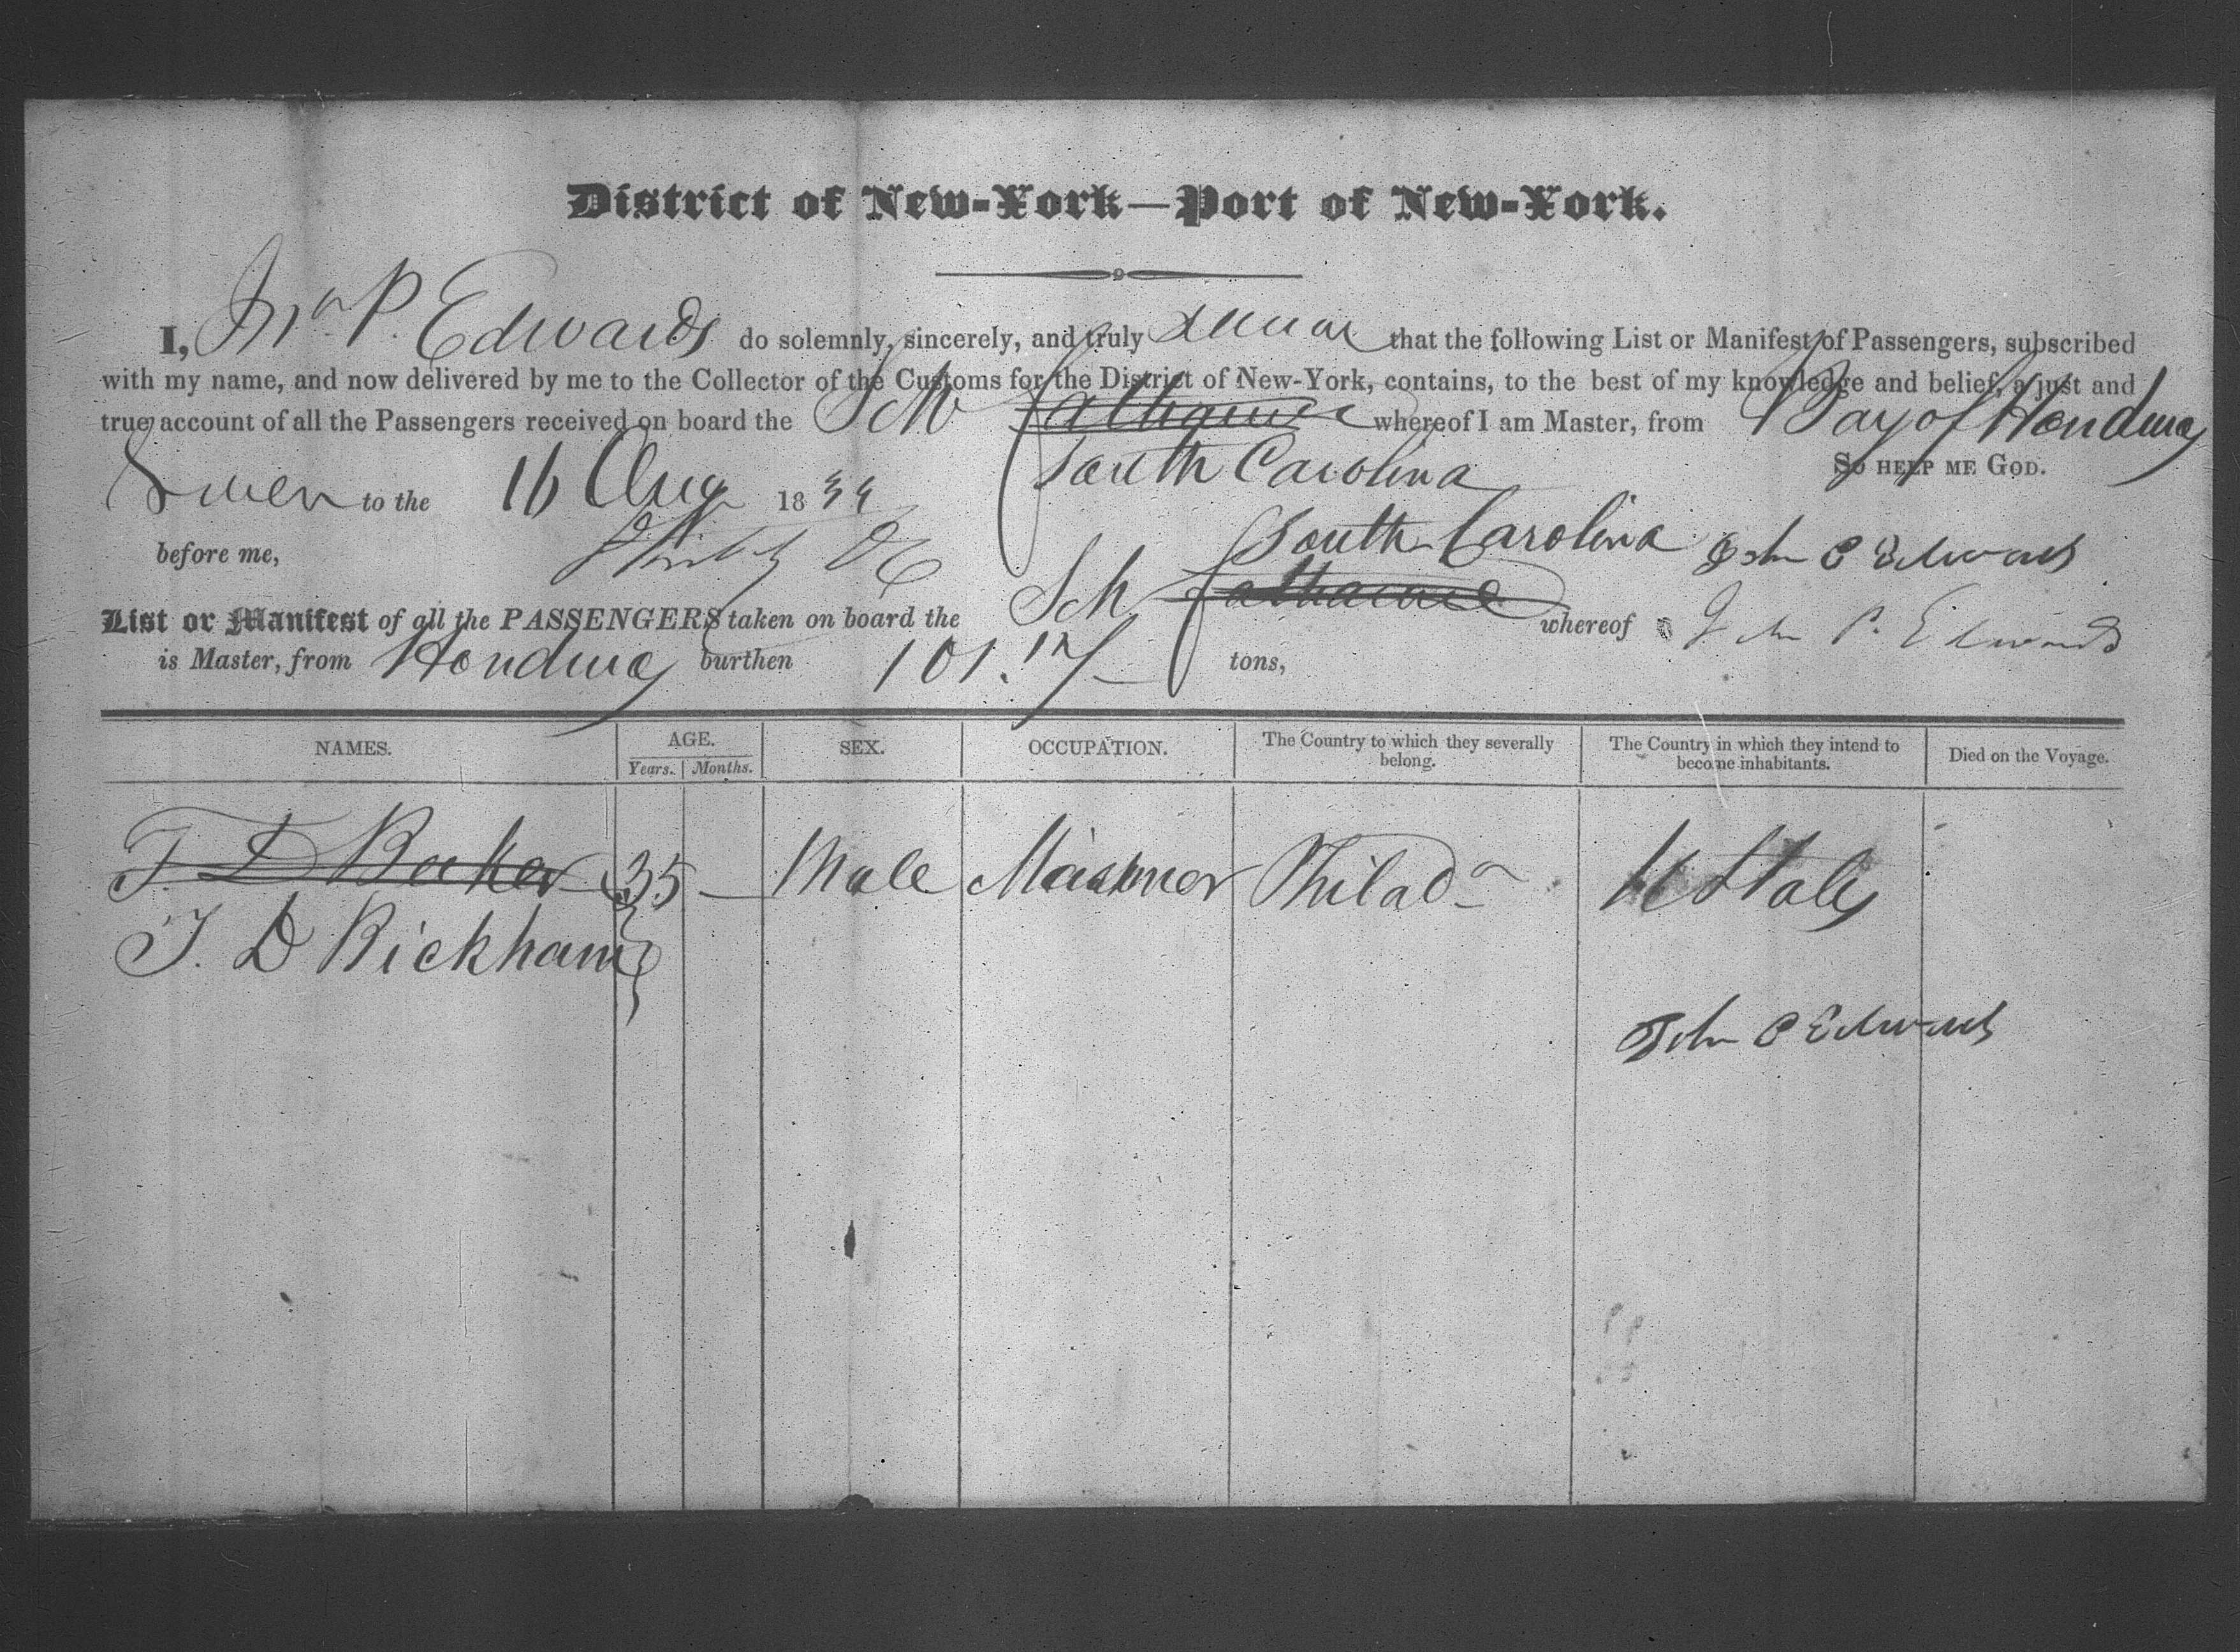 District of New-York—Port of New-York.
I, Jno P. Edwards do solemnly, sincerely, and truly swear that the following List or Manifest of Passengers, subscribed
with my name, and now delivered by me to the Collector of the Customs for the District of New-York, contains, to the best of my knowledge and belief, a just and
true account of all the Passengers received on board the Sch whereof I am Master, from Bay of Honduras
South Carolina
So help me God.
Sworn to the 16 Aug 1834
before me,
South Carolina John P Edwards
List or Manifest of all the PASSENGERS taken on board the Sch whereof John P. Edwards
is Master, from Honduras burthen 101. tons,
NAMES. AGE. SEX. OCCUPATION. The Country to which they severally belong. The Country in which they intend to become inhabitants. Died on the Voyage.
Years. Months.
T. D 35 — Male Mariner Philada U States
T. D Bickham
John P Edwards